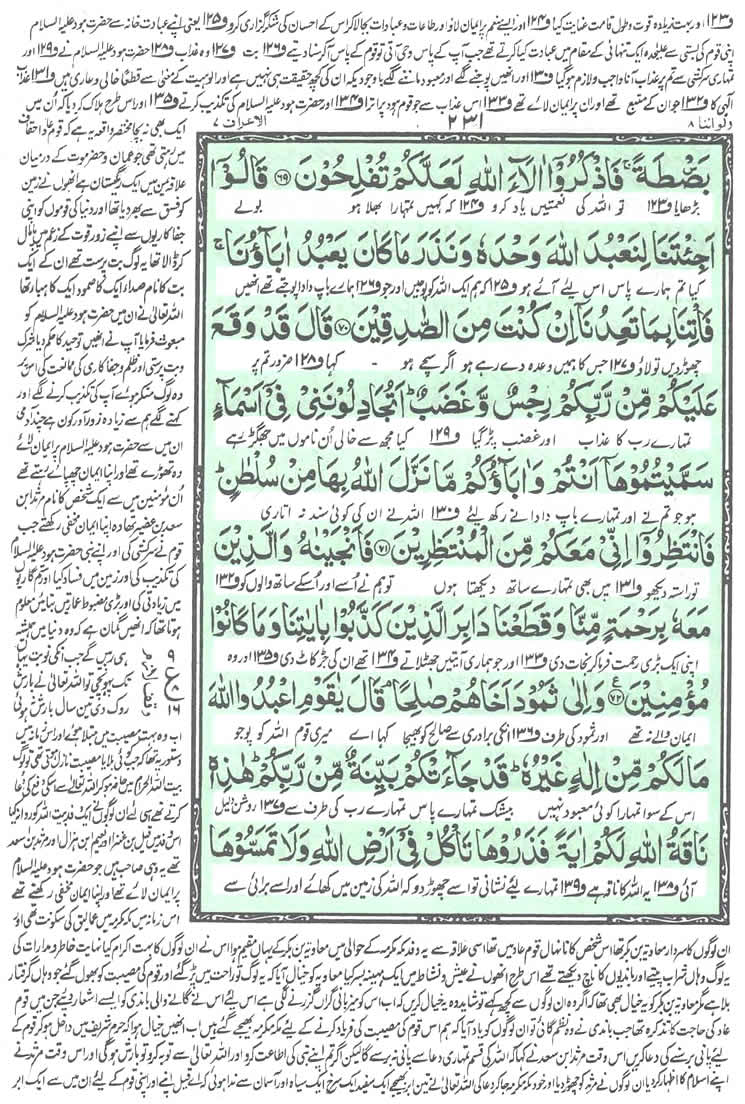 و۱۲۳ اور بہت زیادہ قوت و طول قامت عنایت کیا و۱۲۴ اور ایسے منعم پر ایمان لاؤ اور طاعات و عبادات بجالا کر اس کے احسان کی شکر گزاری کرو و۱۲۵ یعنی اپنے عبادت خانہ سے حضرت ہود علیہ السلام
اپنی قوم کی بستی سے علیحدہ ایک تنہائی کے مقام میں عبادت کیا کرتے تھے جب آپ کے پاس وحی آتی تو قوم کے پاس آکر سنا دیتے و۱۲۶ بت و۱۲۷ وہ عذاب و۱۲۸ حضرت ہود علیہ السلام نے و۱۲۹ اور
تمہاری سرکشی سے تم پر عذاب آنا واجب و لازم ہو گیا و۱۳۰ اور انھیں پوجنے لگے اور معبود ماننے لگے باوجودیکہ ان کی کچھ حقیقت ہی نہیں ہے اور الوہیت کے معنی سے قطعًا خالی و عاری ہیں و۱۳۱ عذاب
الٰہی کا و۱۳۲ جو ان کے متبع تھے اور ان پر ایمان لائے تھے و۱۳۳ اس عذاب سے جو قوم ہود پر اترا و۱۳۴ اور حضرت ہود علیہ السلام کی تکذیب کرتے و۱۳۵ اور اس طرح ہلاک کر دیا کہ ان میں
ولو اننا ۸ ۲۳۱ الاعراف ۷
بَصْۜطَةً ۚ فَاذْكُرُوْۤا اٰلَآءَ اللّٰهِ لَعَلَّكُمْ تُفْلِحُوْنَ ۝۶۹ قَالُوْۤا
بڑھایا و۱۲۳ تو اللہ کی نعمتیں یاد کرو و۱۲۴ کہ کہیں تمہارا بھلا ہو بولے
اَجِئْتَنَا لِنَعْبُدَ اللّٰهَ وَحْدَهٗ وَنَذَرَ مَا كَانَ يَعْبُدُ اٰبَآؤُنَا ۚ
کیا تم ہمارے پاس اس لئے آئے ہو و۱۲۵ کہ ہم ایک اللہ کو پوجیں اور جو و۱۲۶ ہمارے باپ دادا پوجتے تھے انھیں
فَاْتِنَا بِمَا تَعِدُنَاۤ اِنْ كُنْتَ مِنَ الصّٰدِقِيْنَ ۝۷۰ قَالَ قَدْ وَقَعَ
چھوڑ دیں تو لاؤ و۱۲۷ جس کا ہمیں وعدہ دے رہے ہو اگر سچے ہو - کہا و۱۲۸ ضرور تم پر
عَلَيْكُمْ مِّنْ رَّبِّكُمْ رِجْسٌ وَّغَضَبٌ ؕ اَتُجَادِلُوْنَنِيْ فِيْۤ اَسْمَآءٍ
تمہارے رب کا عذاب اور غضب پڑ گیا و۱۲۹ کیا مجھ سے خالی ان ناموں میں جھگڑ رہے
سَمَّيْتُمُوْهَاۤ اَنْتُمْ وَاٰبَآؤُكُمْ مَّا نَزَّلَ اللّٰهُ بِهَا مِنْ سُلْطٰنٍ ؕ
ہو جو تم نے اور تمہارے باپ دادا نے رکھ لئے و۱۳۰ اللہ نے ان کی کوئی سند نہ اتاری
فَانْتَظِرُوْۤا اِنِّيْ مَعَكُمْ مِّنَ الْمُنْتَظِرِيْنَ ۝۷۱ فَاَنْجَيْنٰهُ وَالَّذِيْنَ
تو راستہ دیکھو و۱۳۱ میں بھی تمہارے ساتھ دیکھتا ہوں تو ہم نے اُسے اور اُسکے ساتھ والوں کو و۱۳۲
مَعَهٗ بِرَحْمَةٍ مِّنَّا وَقَطَعْنَا دَابِرَ الَّذِيْنَ كَذَّبُوْا بِاٰيٰتِنَا وَمَا كَانُوْا
اپنی ایک بڑی رحمت فرما کر نجات دی و۱۳۳ اور جو ہماری آیتیں جھٹلاتے و۱۳۴ تھے ان کی جڑ کاٹ دی و۱۳۵ اور وہ
مُؤْمِنِيْنَ ۝۷۲ وَاِلٰى ثَمُوْدَ اَخَاهُمْ صٰلِحًا ۘ قَالَ يٰقَوْمِ اعْبُدُوا اللّٰهَ
ایمان والے نہ تھے اور ثمود کی طرف و۱۳۶ انکی برادری سے صالح کو بھیجا کہا اے میری قوم اللہ کو پوجو
مَا لَكُمْ مِّنْ اِلٰهٍ غَيْرُهٗ ؕ قَدْ جَآءَتْكُمْ بَيِّنَةٌ مِّنْ رَّبِّكُمْ ؕ هٰذِهٖ
اس کے سوا تمہارا کوئی معبود نہیں بیشک تمہارے پاس تمہارے رب کی طرف سے و۱۳۷ روشن دلیل
نَاقَةُ اللّٰهِ لَكُمْ اٰيَةً فَذَرُوْهَا تَاْكُلْ فِيْۤ اَرْضِ اللّٰهِ وَلَا تَمَسُّوْهَا
آئی و۱۳۸ یہ اللہ کا ناقہ ہے و۱۳۹ تمہارے لئے نشانی تو اسے چھوڑ دو کہ اللہ کی زمین میں کھائے اور اسے برائی سے
ایک بھی نہ بچا مختصر واقعہ یہ ہے کہ قوم عاد احقاف
میں رہتی تھی جو عمان و حضرموت کے درمیان
علاقہ یمن میں ایک ریگستان ہے انھوں نے زمین
کو فسق سے بھر دیا تھا اور دنیا کی قوموں کو اپنی
جفا کاریوں سے اپنے زور قوت کے زعم میں پامال
کر ڈالا تھا یہ لوگ بت پرست تھے ان کے ایک
بت کا نام صداء ایک کا صمود ایک کا ہبا تھا
اللہ تعالیٰ نے ان میں حضرت ہود علیہ السلام کو
مبعوث فرمایا آپ نے انھیں توحید کا حکم دیا شرک
و بت پرستی اور ظلم و جفا کاری کی ممانعت کی اس پر
وہ لوگ منکر ہوئے آپ کی تکذیب کرنے لگے اور
کہنے لگے ہم سے زیادہ زور آور کون ہے چند آدمی
ان میں سے حضرت ہود علیہ السلام پر ایمان لائے
وہ تھوڑے تھے اور اپنا ایمان چھپائے رہتے تھے
اُن مؤمنین میں سے ایک شخص کا نام مرثد ابن
سعد بن عفیر تھا وہ اپنا ایمان مخفی رکھتے تھے جب
قوم نے سرکشی کی اور اپنے نبی حضرت ہود علیہ السلام
کی تکذیب کی اور زمین میں فساد کیا اور ستم گاریوں
میں زیادتی کی اور بڑی مضبوط عمارتیں بنائیں معلوم
ہوتا تھا کہ انھیں گمان ہے کہ وہ دنیا میں ہمیشہ
ہی رہیں گے جب انکی نوبت یہاں
تک پہونچی تو اللہ تعالیٰ نے بارش
روک دی تین سال بارش نہ ہوئی
۹
ع
۱۶
اب وہ بہت مصیبت میں مبتلا ہوئے اور اس زمانہ میں
دستور یہ تھا کہ جب کوئی بلا یا مصیبت نازل ہوتی تھی تو لوگ
بیت اللہ الحرام میں حاضر ہو کر اللہ تعالیٰ سے اسکی دفع کی دعا
کرتے تھے اسی لئے ان لوگوں نے ایک وفد بیت اللہ کو روانہ کیا
اس وفد میں قیل بن عنز اور نعیم بن ہزال اور مرثد بن سعد
تھے یہ وہی صاحب ہیں جو حضرت ہود علیہ السلام
پر ایمان لائے تھے اور اپنا ایمان مخفی رکھتے تھے
اس زمانہ میں مکہ مکرمہ میں عمالیق کی سکونت تھی اور
ان لوگوں کا سردار معاویہ بن بکر تھا اس شخص کا نانہال قوم عاد میں تھا اسی علاقہ سے یہ وفد مکہ مکرمہ کے حوالی میں معاویہ بن بکر کے یہاں مقیم ہوا اس نے ان لوگوں کا بہت اکرام کیا نہایت خاطر و مدارات کی
یہ لوگ وہاں شراب پیتے اور باندیوں کا ناچ دیکھتے تھے اس طرح انھوں نے عیش و نشاط میں ایک مہینہ بسر کیا معاویہ کو خیال آیا کہ یہ لوگ تو راحت میں پڑ گئے اور قوم کی مصیبت کو بھول گئے جو وہاں گرفتار
بلا ہے مگر معاویہ بن بکر کو یہ خیال بھی تھا کہ اگر وہ ان لوگوں سے کچھ کہے تو شاید وہ یہ خیال کریں کہ اب اس کو میزبانی گراں گزرنے لگی ہے اس لئے اس نے گانے والی باندی کو ایسے اشعار دیئے جن میں قوم
عاد کی حاجت کا تذکرہ تھا جب باندی نے وہ نظم گائی تو ان لوگوں کو یاد آیا کہ ہم اس قوم کی مصیبت کی فریاد کرنے کے لئے مکہ مکرمہ بھیجے گئے ہیں اب انھیں خیال ہوا کہ حرم شریف میں داخل ہو کر قوم کے
لئے پانی برسنے کی دعا کریں اس وقت مرثد ابن سعد نے کہا کہ اللہ کی قسم تمہاری دعا سے پانی نہ برسے گا لیکن اگر تم اپنے نبی کی اطاعت کرو اور اللہ تعالیٰ سے توبہ کرو تو بارش ہو گی اور اس وقت مرثد نے
اپنے اسلام کا اظہار کر دیا ان لوگوں نے مرثد کو چھوڑ دیا اور خود مکہ مکرمہ جا کر دعا کی اللہ تعالیٰ نے تین ابر بھیجے ایک سفید ایک سرخ ایک سیاہ اور آسمان سے ندا ہوئی کہ اے قیل اپنے اور اپنی قوم کے لئے ان میں سے ایک ابر